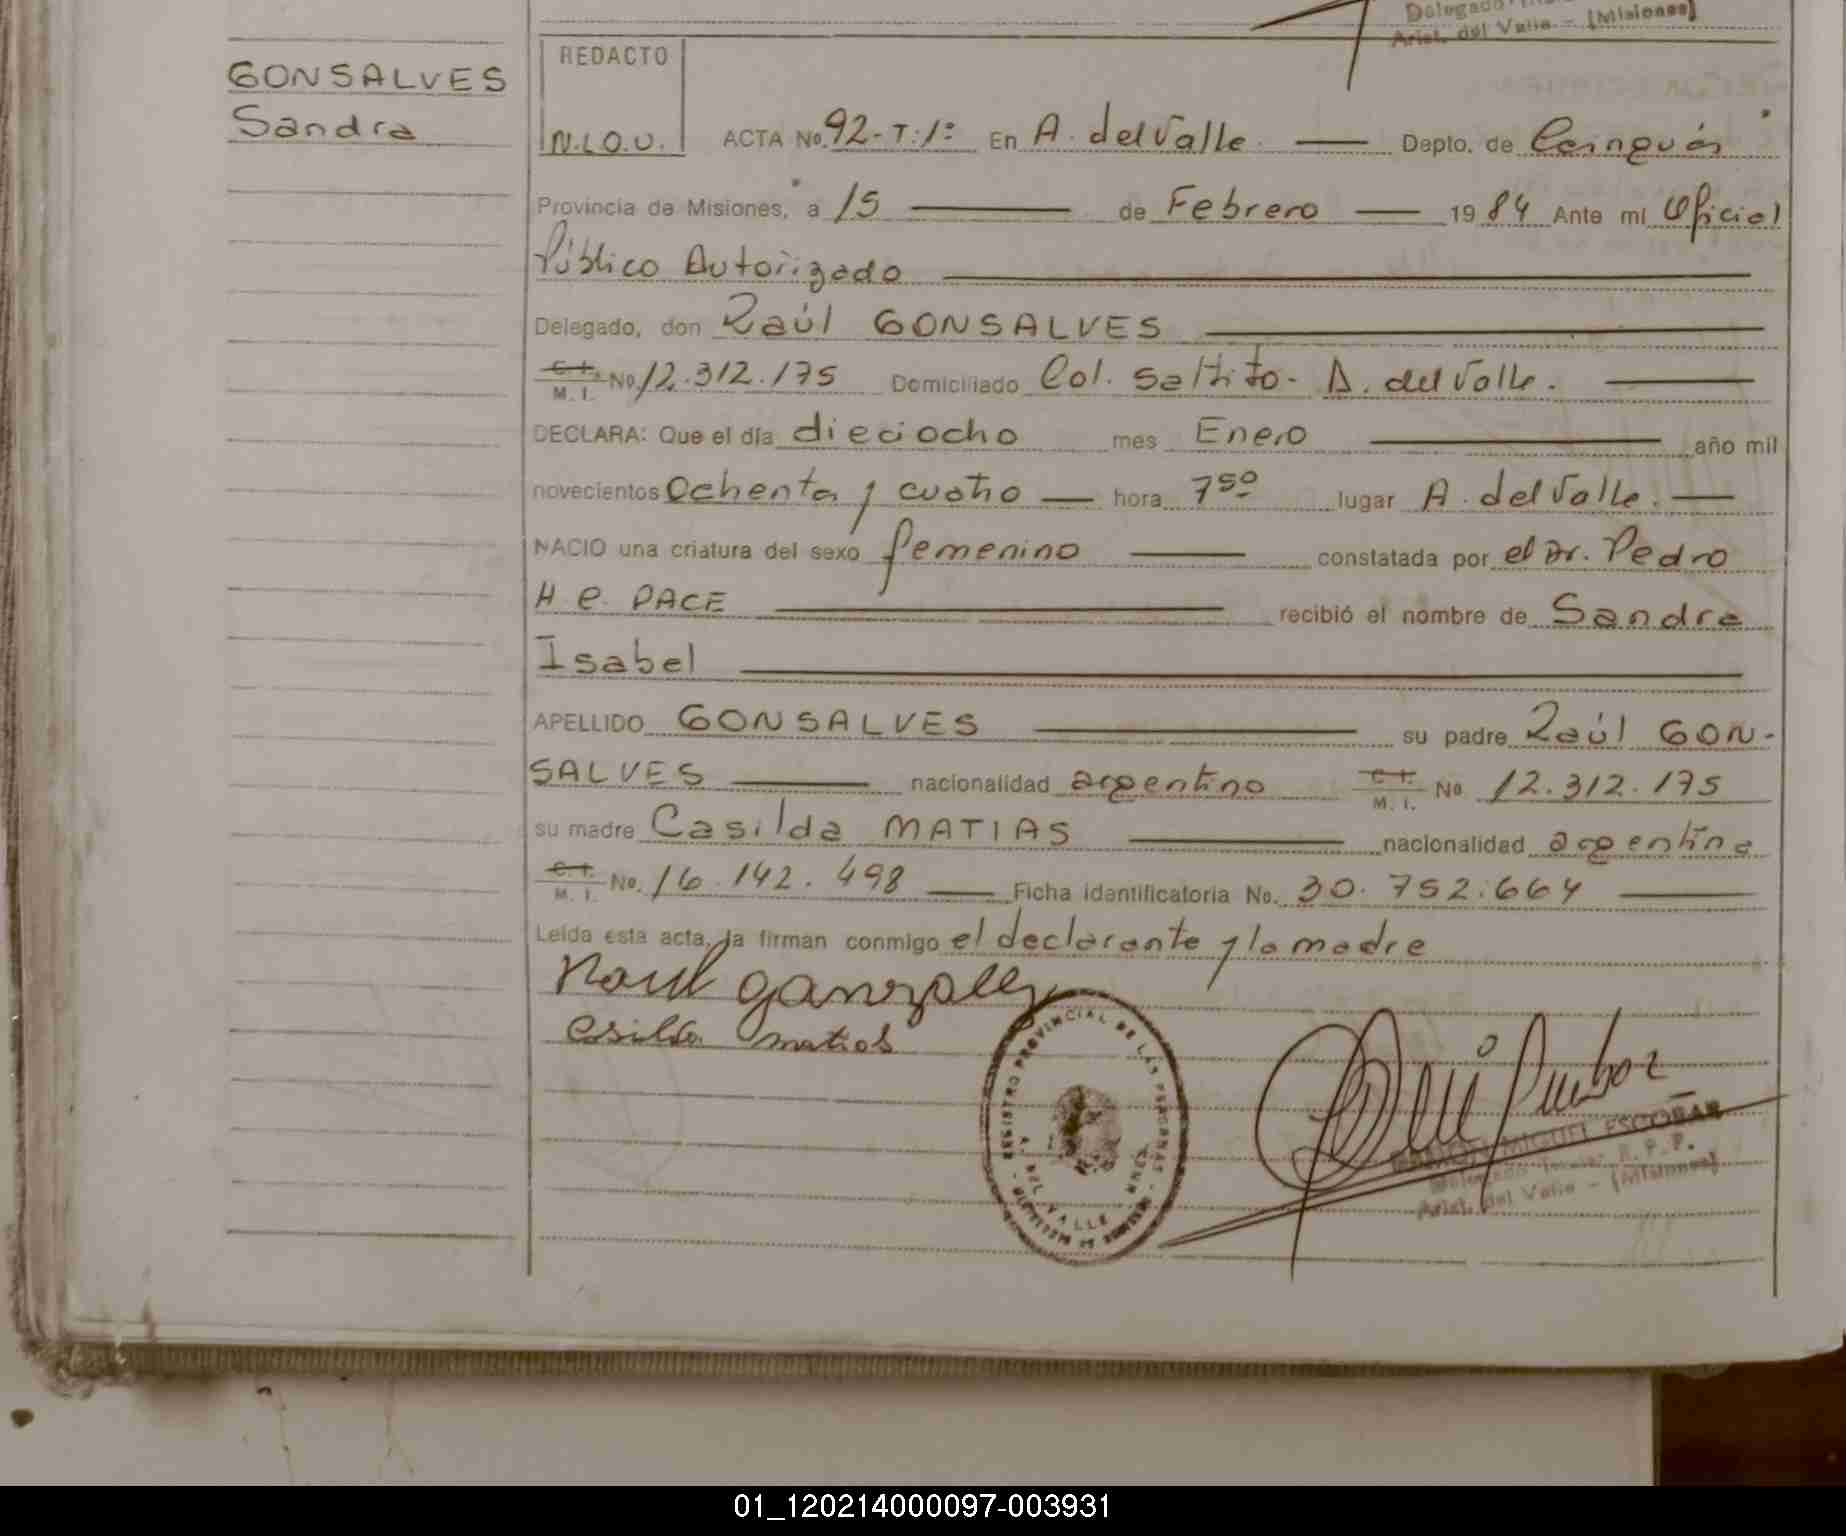 Delegado
Arist. del Valle - (Misiones)
GONSALVES
Sandra
REDACTO
N.L.O.U.
ACTA No. 92-T:1º En A. del Valle. Depto. de Cainguás
Provincia de Misiones, a 15 de Febrero 1984 Ante mí Oficial
Público Autorizado
Delegado, don Raúl GONSALVES
C.I. M.I. No. 12.312.175 Domiciliado Col. Saltito- A. del Valle.
DECLARA: Que el día dieciocho mes Enero año mil
novecientos Ochenta y cuatro hora 7⁵⁰ lugar A. del Valle.
NACIO una criatura del sexo femenino constatada por el Dr. Pedro
H. C. PACE recibió el nombre de Sandra
Isabel
APELLIDO GONSALVES su padre Raúl GON-
SALVES nacionalidad argentino C.I. M.I. No. 12.312.175
su madre Casilda MATIAS nacionalidad argentina
C.I. M.I. No. 16.142.498 Ficha identificatoria No. 30.752.664
Leída esta acta, la firman conmigo el declarante y la madre
Raul ganzalez
Casilda matias
REGISTRO PROVINCIAL DE LAS PERSONAS
A. DEL VALLE
RAMON MIGUEL ESCOBAR
Delegado Titular R. P. P.
Arist. del Valle - (Misiones)
01_120214000097-003931